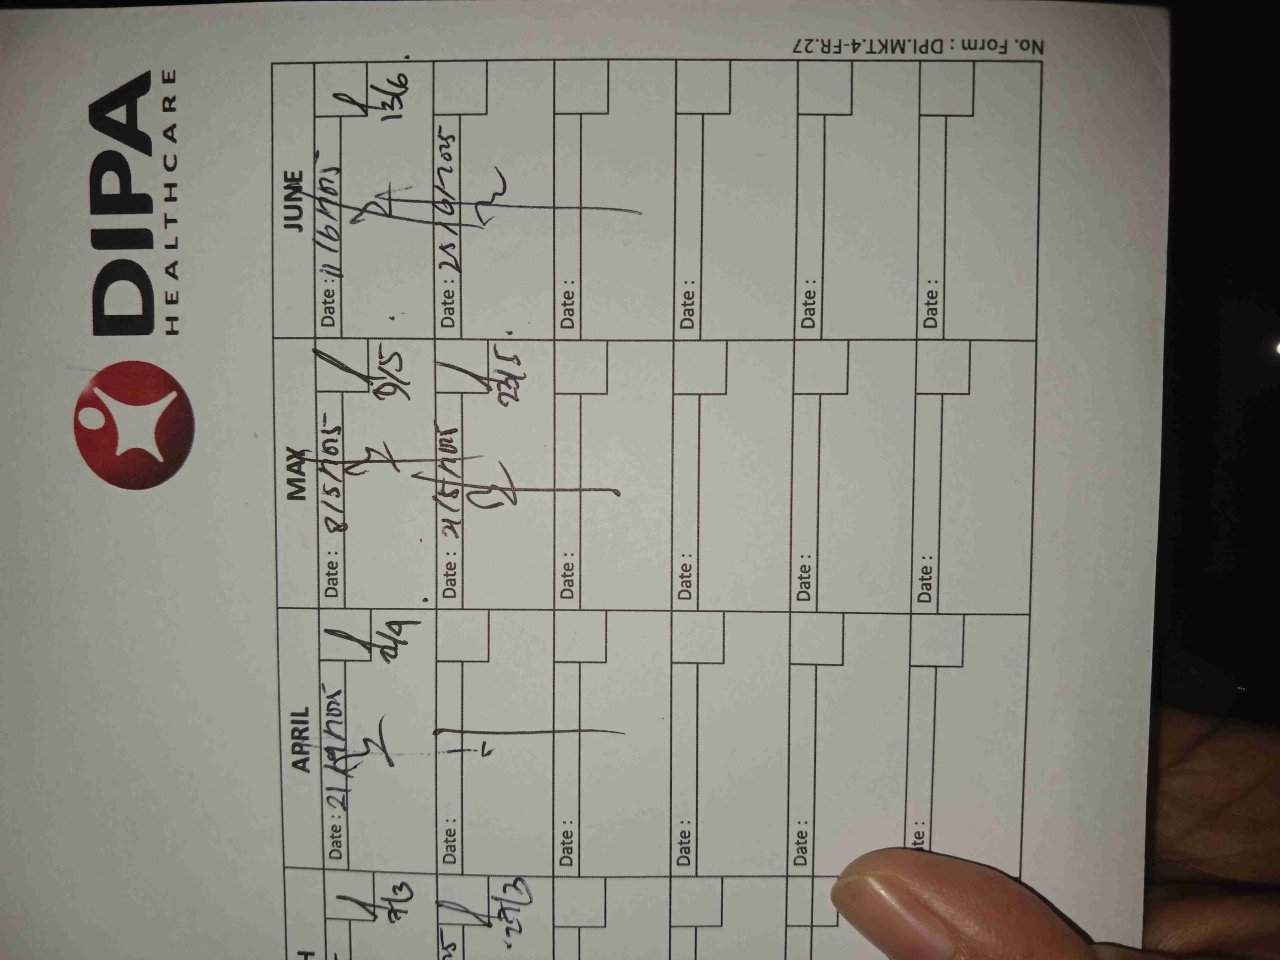 DIPA
HEALTHCARE
APRIL
MAX
JUNE
Date : 21/4/2025
Date : 8/5/2025
Date : 11/6/2025
7/3
9/5
13/6
Date :
Date : 21/5/2025
Date : 25/6/2025
27/3
23/5
Date :
Date :
Date :
Date :
Date :
Date :
Date :
Date :
Date :
te :
Date :
Date :
No. Form : DPI.MKT.4-FR.27